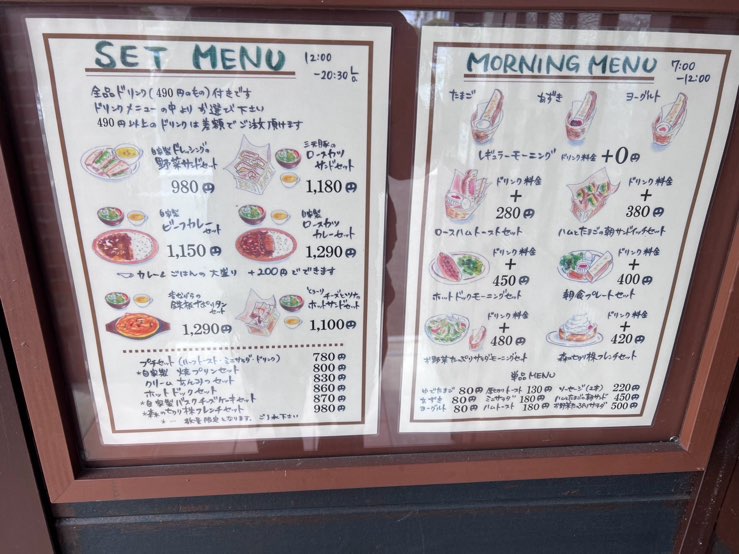 SET MENU
12:00
-20:30 L.O.
全品ドリンク(490円のもの)付きです
ドリンクメニューの中よりお選び下さい
490円以上のドリンクは差額でご注文頂けます
自家製ドレッシングの
野菜サンドセット
980円
三元豚の
ロースカツ
サンドセット
1,180円
自家製
ビーフカレー
セット
1,150円
自家製
ロースカツ
カレーセット
1,290円
カレーとごはんの大盛り +200円でできます
昔ながらの
鉄板ナポリタン
セット
1,290円
チーズとツナの
ホットサンドセット
1,100円
プチセット(ハーフトースト・ミニサラダ・ドリンク) 780円
*自家製 焼プリンセット 800円
クリームあんみつセット 830円
ホットドックセット 860円
*自家製バスクチーズケーキセット 870円
*森のもっちり株フレンチセット 980円
*… 数量限定となります。ご了承下さい
MORNING MENU
7:00
-12:00
たまご
あずき
ヨーグルト
レギュラーモーニング ドリンク料金+0円
ドリンク料金
+
280円
ロースハムトーストセット
ドリンク料金
+
380円
ハムとたまごの朝サンドイッチセット
ドリンク料金
+
450円
ホットドックモーニングセット
ドリンク料金
+
400円
朝食プレートセット
ドリンク料金
+
480円
お野菜たっぷりサラダモーニングセット
ドリンク料金
+
420円
森のもっちり株フレンチセット
単品MENU
ゆでたまご 80円 厚切りトースト 130円 ソーセージ(2本) 220円
あずき 80円 ミニサラダ 180円 ハムとたまごの朝サンド 450円
ヨーグルト 80円 ハムトースト 180円 お野菜たっぷりサラダ 500円